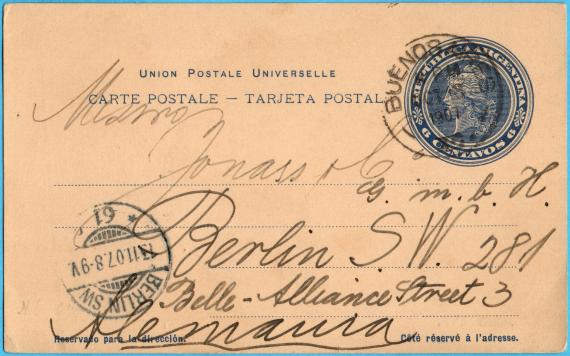 UNION POSTALE UNIVERSELLE
CARTE POSTALE — TARJETA POSTAL
REPUBLICA ARGENTINA
6 CENTAVOS 6
BUENOS
1907
Jonass & Co
G. m. b. H.
Berlin SW. 281
Belle-Alliance Street 3
Alemania
* 61
13.11.07.8-9V.
BERLIN SW
Reservano para la dirección.
Côté réservé à l'adresse.